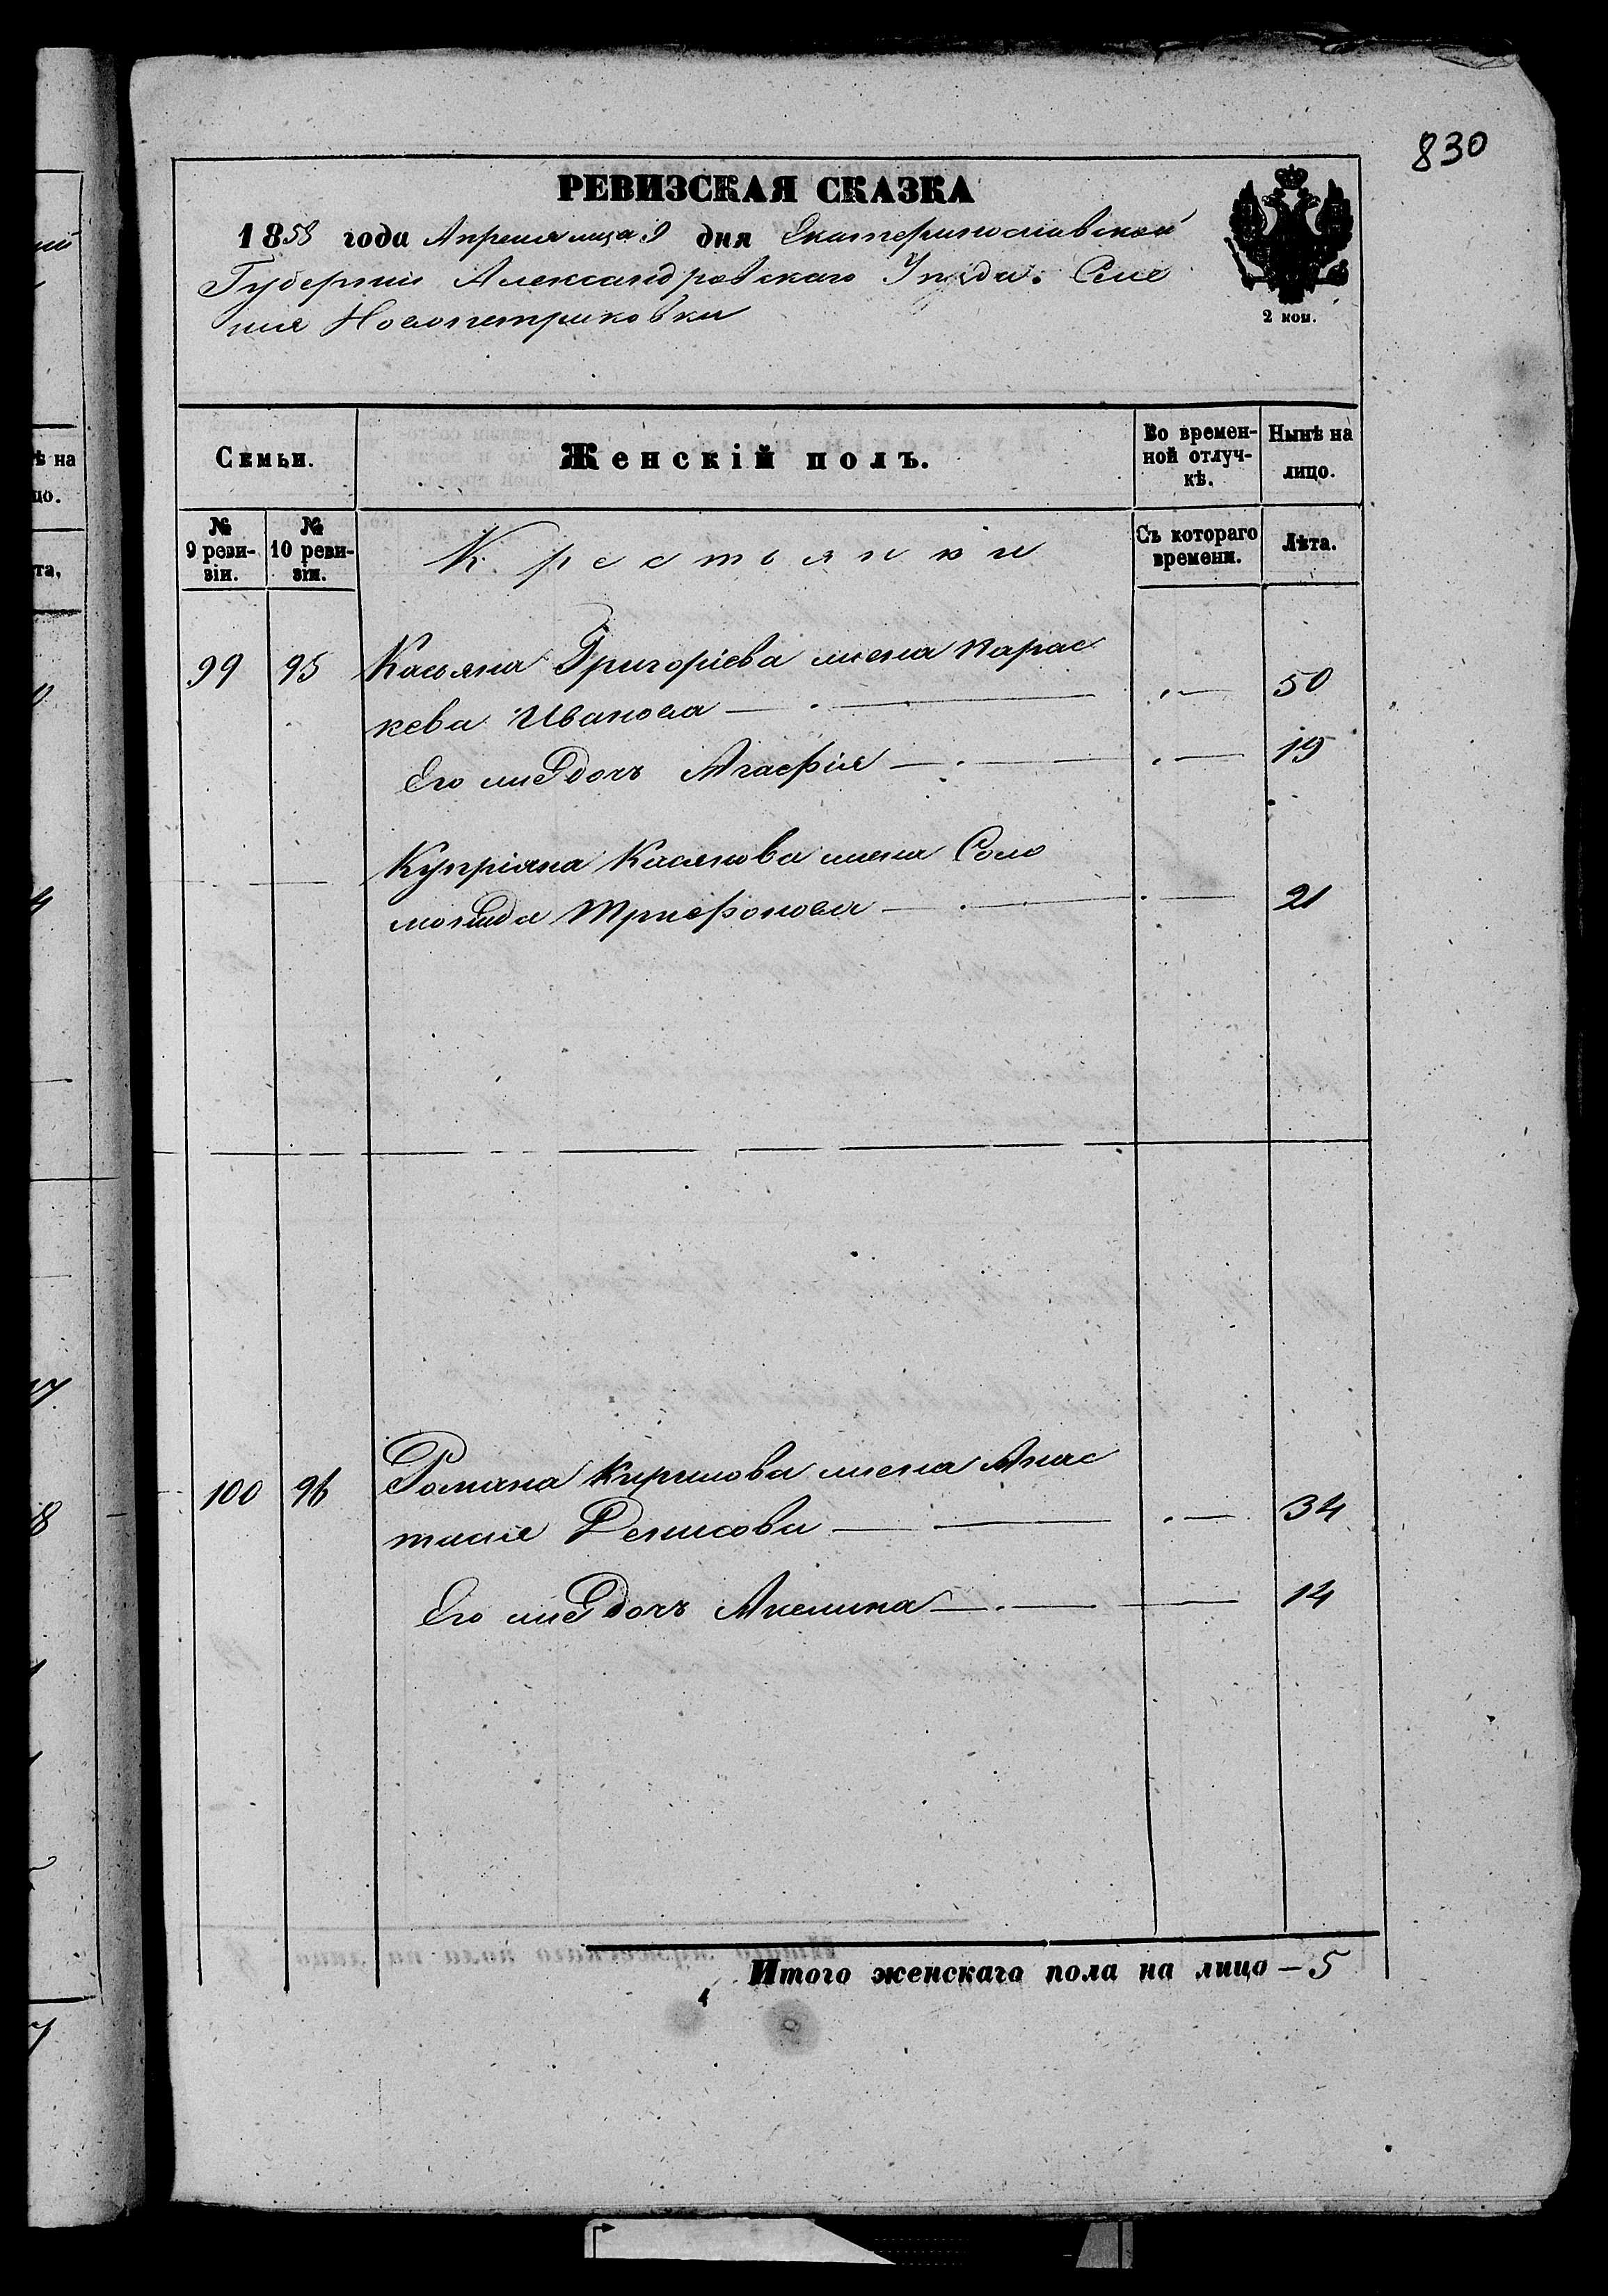 830
РЕВИЗСКАЯ СКАЗКА
1858 года Апреля мца 9 дня Екатеринославской
Губернии Александровскаго Уѣзда. Селе
ния Новопетриковки
2 коп.
Семьи.
Женскій полъ.
Во времен-
ной отлуч-
кѣ.
Нынѣ на
лицо.
№
9 реви-
зіи.
№
10 реви-
зіи.
Крестьянки
Съ котораго
времени.
Лѣта.
99 95 Касьяна Григоріева жена Парас
кева Иванова — 50
Его же дочь Агафія — 19
Купріяна Касянова жена Соло
монида Трифонова — 21
100 96 Романа Кирилова жена Анас
тасия Денисова — 34
Его же дочь Акелина — 14
Итого женскаго пола на лицо — 5